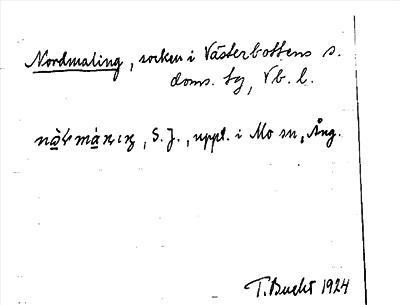 Nordmaling, socken i Västerbottens s.
doms. sg, Vb. l.
S. J., uppl. i Mo sn, Ång.
T. Bucht 1924